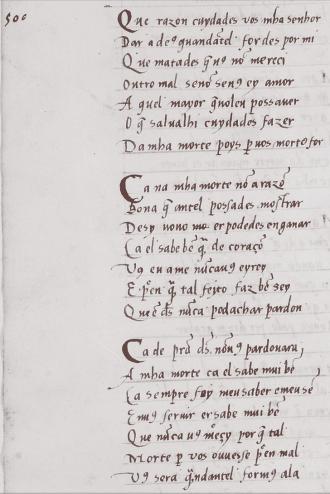 500
Que razon cuydades vos mha senhor
Dar a de9 quandãtel for des por mi
Que matades q̃ u9 nõ mereci
Outro mal senõ sen9 ey amor
A quel mayor q̃ uoleu possauer
O q̃ salualhi cuydades fazer
Da mha morte poys p̃ vos morto for
Ca na mha morte nõ a razõ
Bona q̃ antel possades mostrar
Desy uono er podedes enganar
Ca el sabe bẽ q̃ de coraçõ
V9 eu ame nũca u9 eyrey
E pen q̃ tal feito faz bẽ sey
Que d̃s nũca podachar pardon
Ca de pro d̃s non9 pardoara,
A mha morte ca el sabe mui bẽ
Ca sempre foy meu saber e meu sẽ
En u9 seruir er sabe mui bẽ
Que nũca u9 mereçy por q̃ tal
Morte p̃ vos ouuesse pen mal
V9 sera q̃ndantel form9 ala